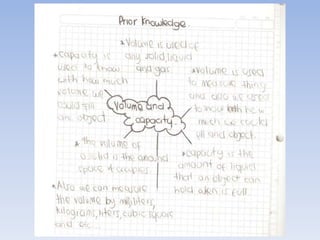 Prior Knowledge.
*Volume is used of
any solid, liquid
and gas.
*capacity is
used to know
with how much
volume we
could fill
an object.
*Volume is used
to measure thing
and also we used
to know both how
much we could
fill and object.
Volume and
capacity.
* the volume of
a solid is the amound
space it occupies.
*capacity is the
amount of liquid
that an object can
hold when is full.
*Also we can measure
the volume by milliliters,
kilograms, liters, cubic square
and etc...